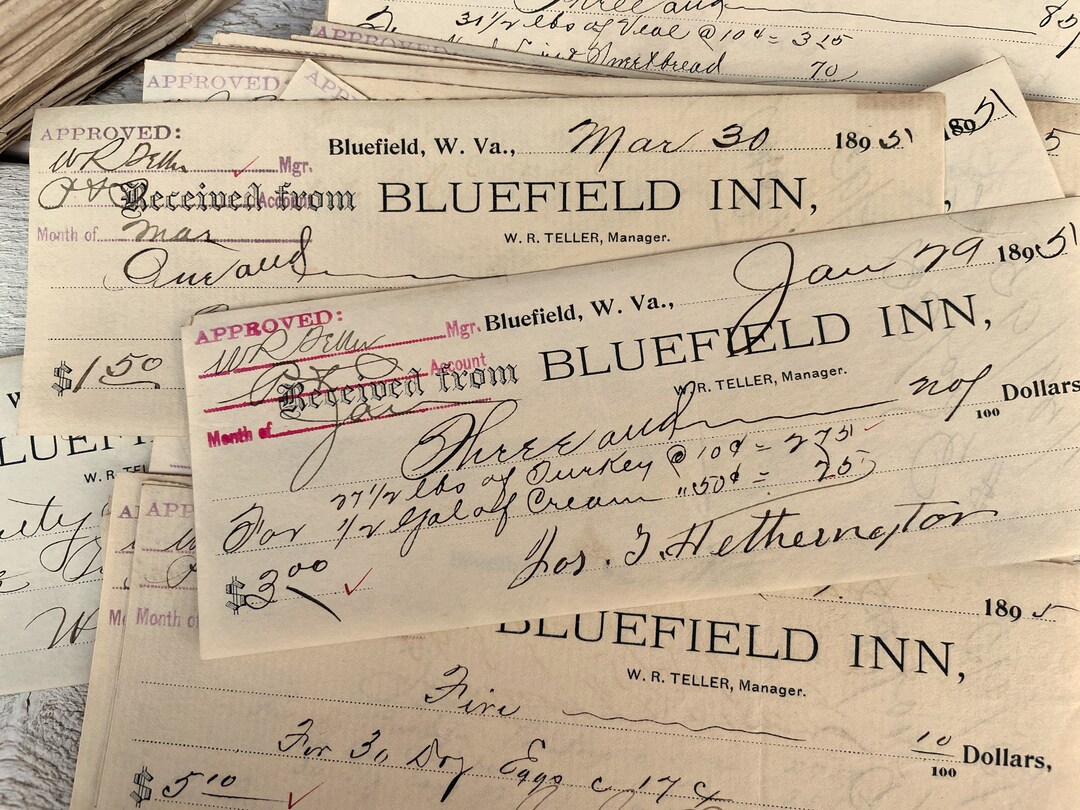 Three and
31 1/2 lbs of Veal @ 10¢ = 3 15
Sweetbread 70
APPROVED:
APPROVED:
APP
APPROVED:
WR Teller Mgr.
Account
Month of Mar
Bluefield, W. Va., Mar 30 1895
Received from BLUEFIELD INN,
W. R. TELLER, Manager.
One and
$1.50
APPROVED:
WR Teller Mgr.
Account
Month of Jan
Bluefield, W. Va., Jan 29 1895
Received from BLUEFIELD INN,
W. R. TELLER, Manager.
Three and no/100 Dollars
For 27 1/2 lbs of Turkey @ 10¢ = 2 75
1/2 Gal of Cream " 50¢ = 25
Jos. T. Hetherington
$3.00
LUEFI
W. R. T
APP
Month of
1895
BLUEFIELD INN,
W. R. TELLER, Manager.
Five 10/100 Dollars,
For 30 Doz Eggs c 17 c
$5.10